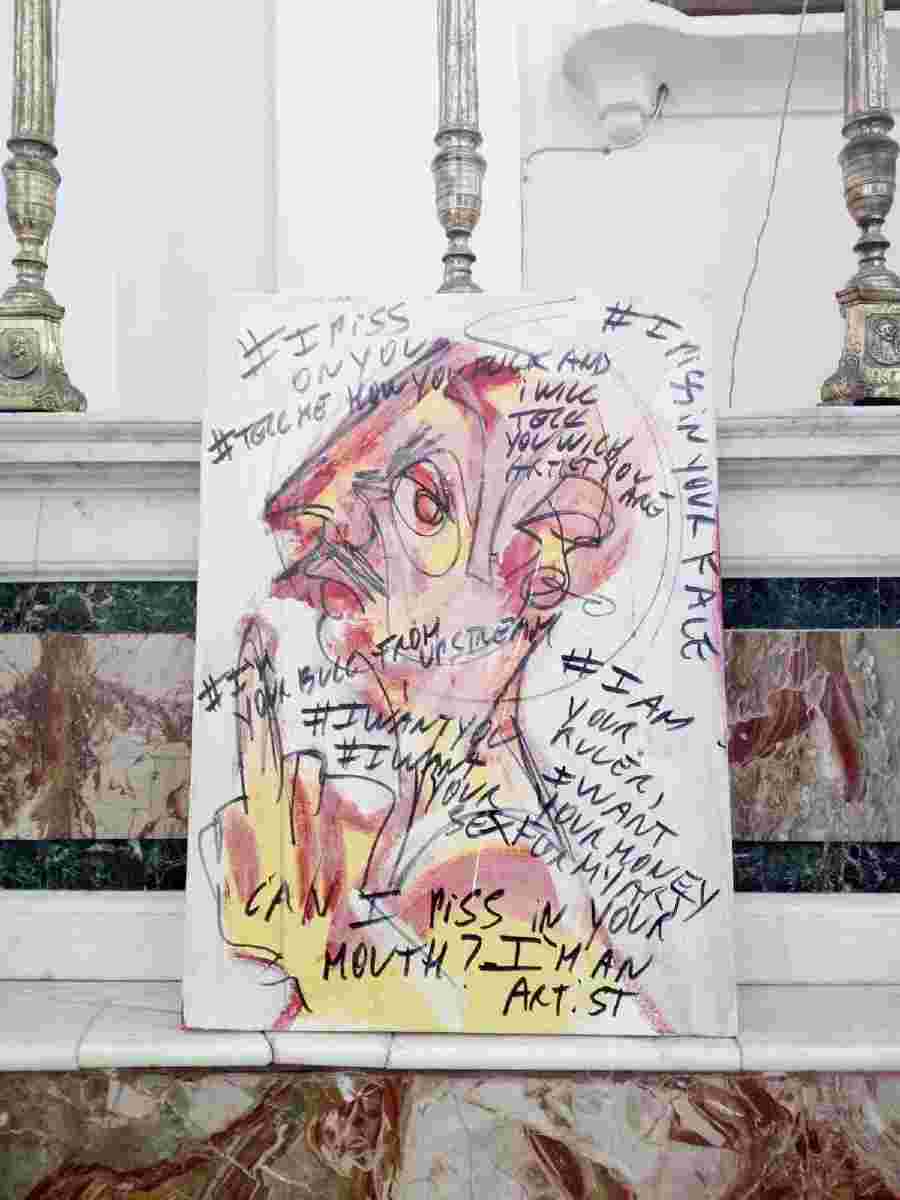 #I PISS
ON YOU
#TELL ME HOW YOU FUCK AND
I WILL
TELL
YOU WICH
ARTIST YOU
ARE
#I PISS IN YOUR FACE
#I'M
YOUR BULL FROM
UPSTREAM
#I WANT YOU
#I WANT
YOUR
SEX
#I AM
YOUR
RULER,
I WANT
YOUR MONEY
FOR MY ART
CAN I PISS IN YOUR
MOUTH? I'M AN
ARTIST